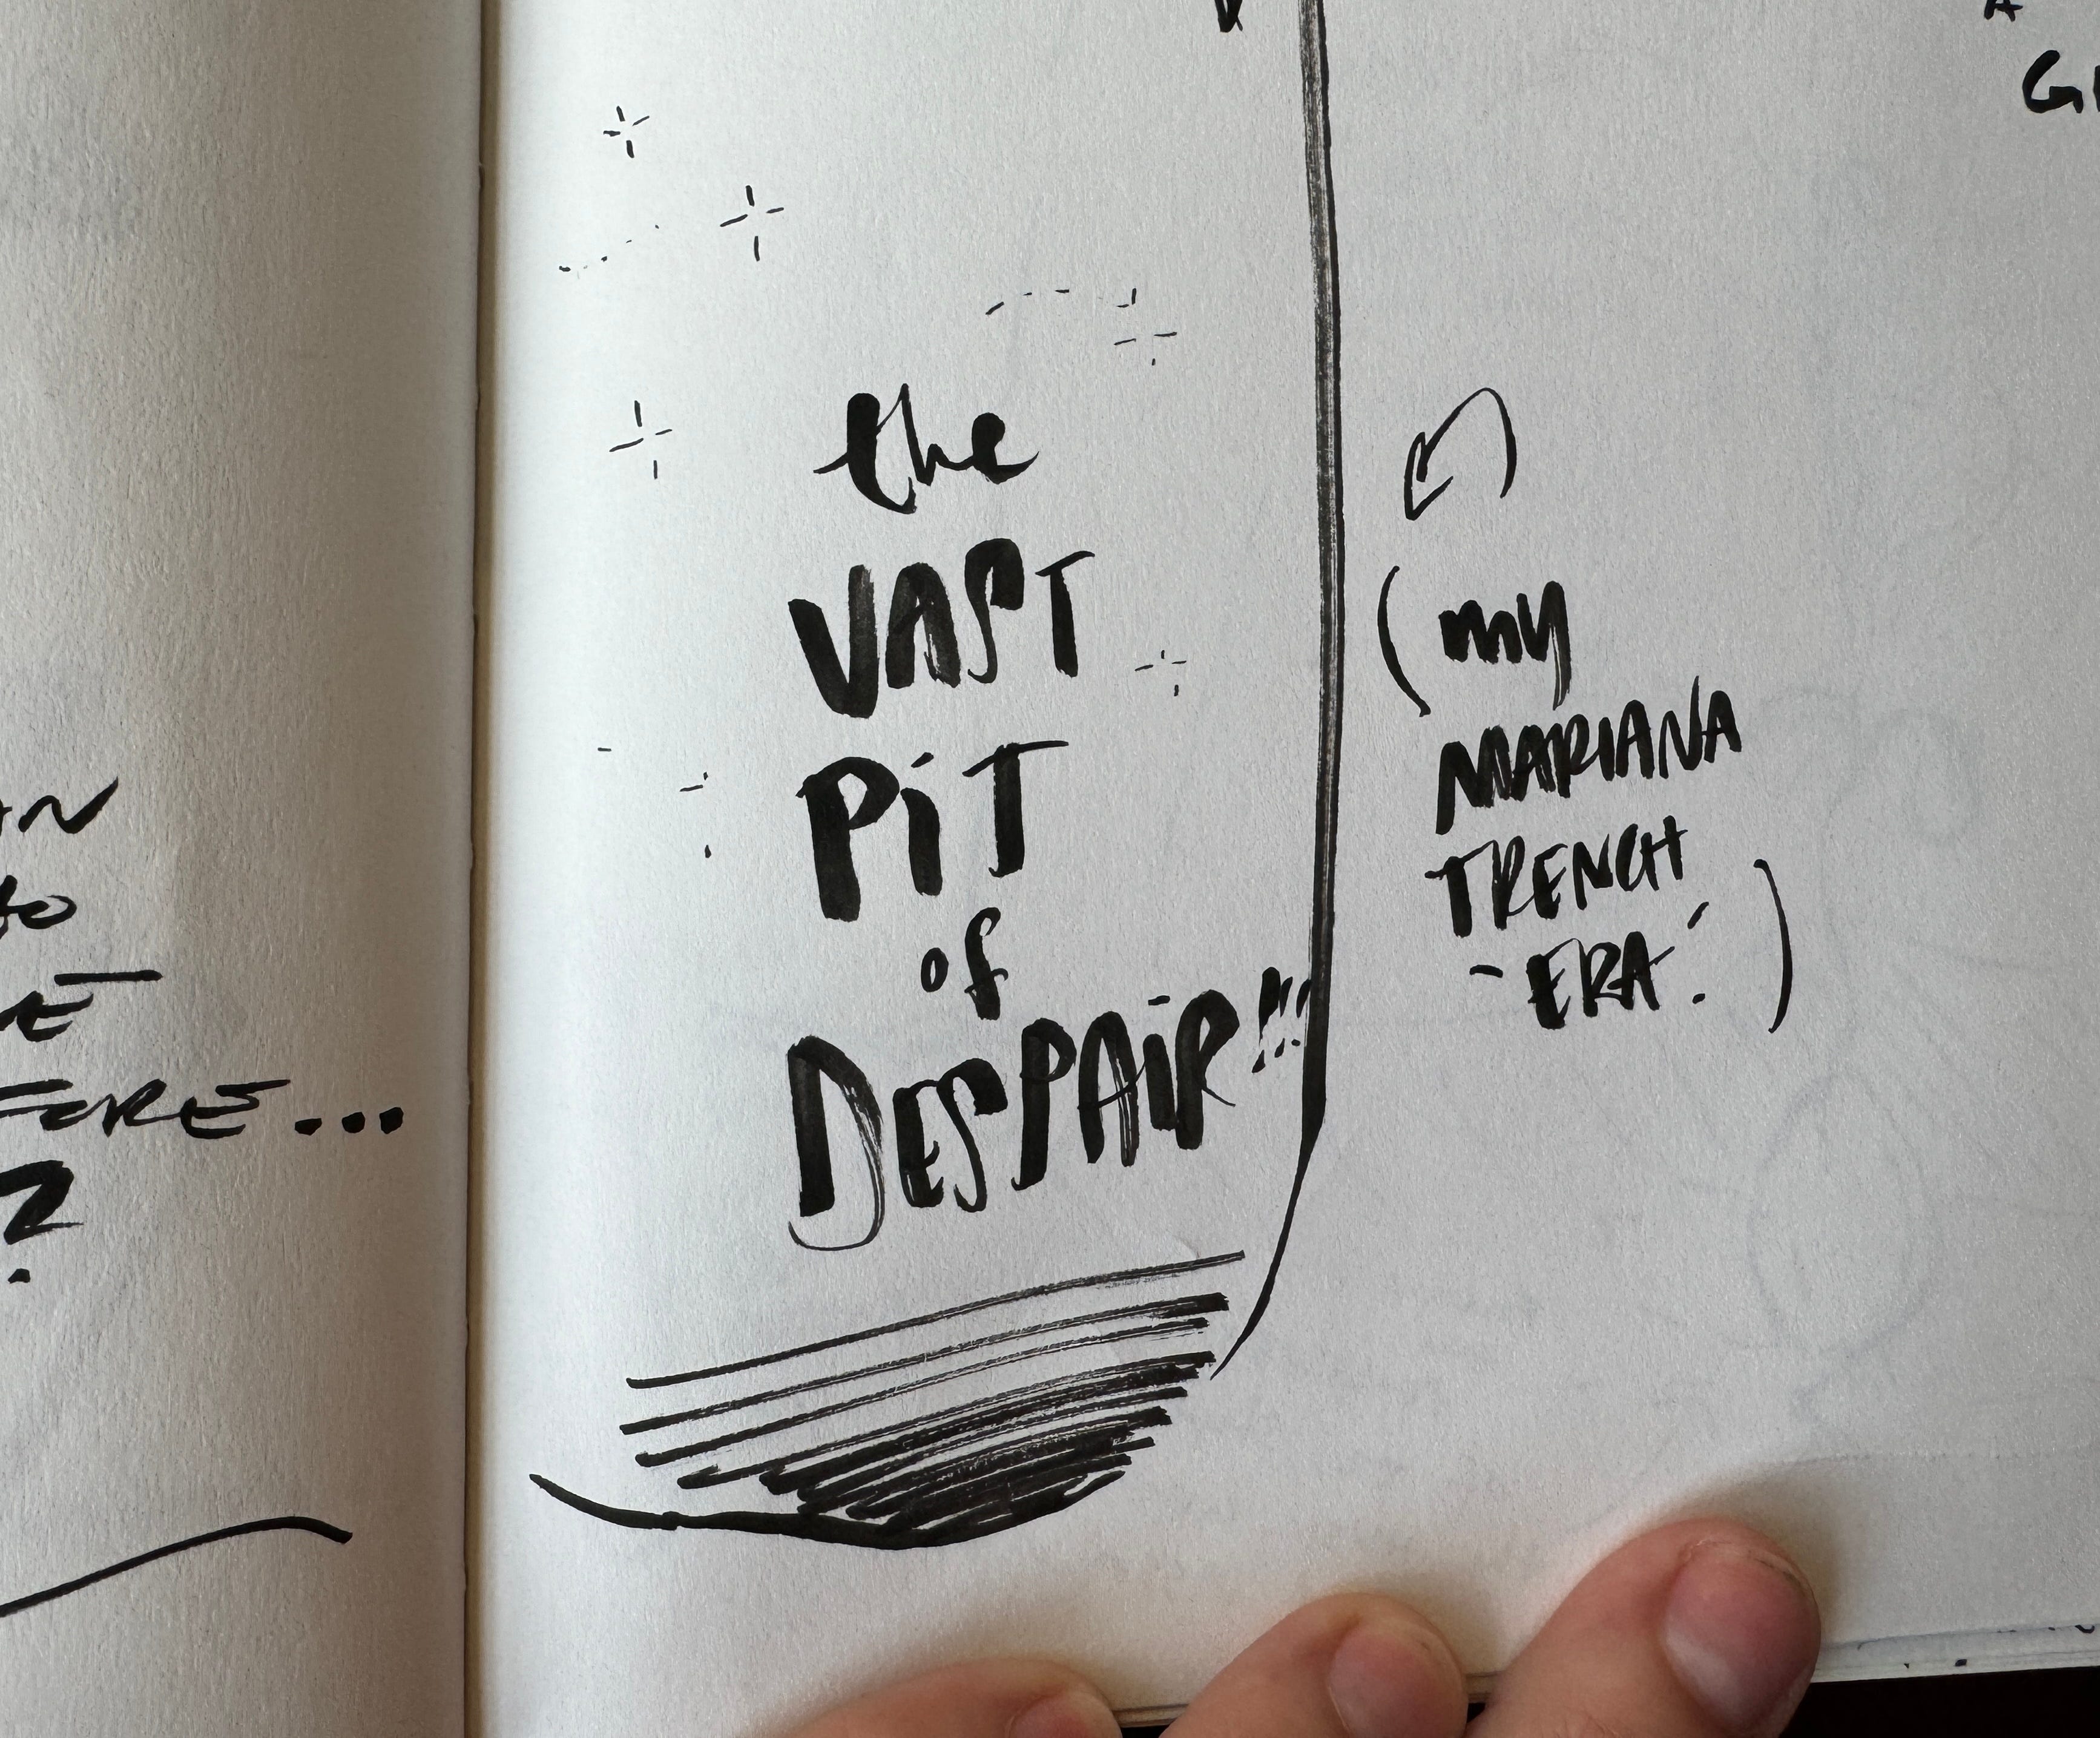 to
...
?
the
VAST
PiT
of
DESPAiR!!!
(my
MARIANA
TRENCH
-ERA!)